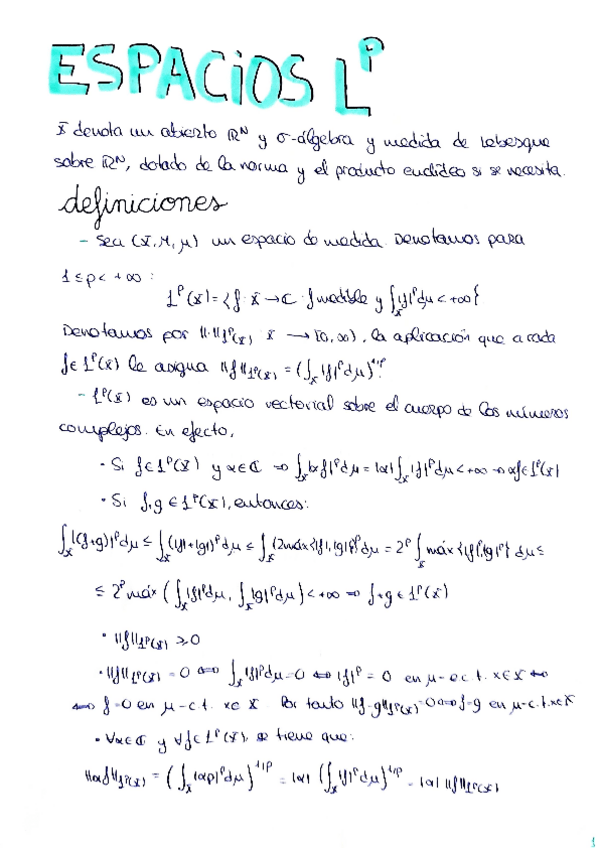 ESPACIOS L^p
X denota un abierto ℝ^N y σ-álgebra y medida de Lebesgue
sobre ℝ^N, dotado de la norma y el producto euclídeo si se necesita.
definiciones
- Sea (X, M, μ) un espacio de medida. Denotamos para
1 ≤ p < +∞ :
L^p(X) = {f: X → ℂ : f medible y ∫_X |f|^p dμ < +∞}
Denotamos por ||·||_{L^p(X)} X → [0, ∞), la aplicación que a cada
f ∈ L^p(X) le asigna ||f||_{L^p(X)} = (∫_X |f|^p dμ)^{1/p}.
- L^p(X) es un espacio vectorial sobre el cuerpo de los números
complejos. En efecto,
· Si f ∈ L^p(X) y α ∈ ℂ ⇒ ∫_X |αf|^p dμ = |α| ∫_X |f|^p dμ < +∞ ⇒ αf ∈ L^p(X)
· Si f, g ∈ L^p(X), entonces:
∫_X |(f+g)|^p dμ ≤ ∫_X (|f|+|g|)^p dμ ≤ ∫_X (2 máx{|f|, |g|})^p dμ = 2^p ∫_X máx{|f|^p, |g|^p} dμ ≤
≤ 2^p máx (∫_X |f|^p dμ, ∫_X |g|^p dμ) < +∞ ⇒ f+g ∈ L^p(X)
· ||f||_{L^p(X)} ≥ 0
· ||f||_{L^p(X)} = 0 ⇔ ∫_X |f|^p dμ = 0 ⇔ |f|^p = 0 en μ-c.t. x ∈ X ⇔
⇔ f = 0 en μ-c.t. x ∈ X. Por tanto ||f-g||_{L^p(X)} = 0 ⇔ f = g en μ-c.t. x ∈ X
· ∀α ∈ ℂ y ∀f ∈ L^p(X), se tiene que:
||αf||_{L^p(X)} = (∫_X |αf|^p dμ)^{1/p} = |α| (∫_X |f|^p dμ)^{1/p} = |α| ||f||_{L^p(X)}
1